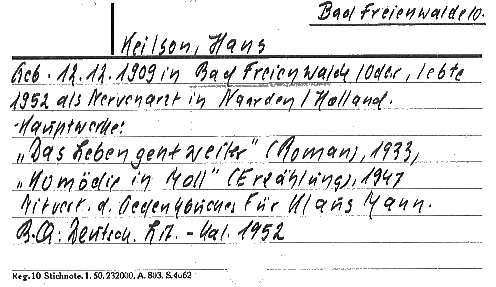 Bad Freienwalde O.
Keilson, Hans
Geb. 12.12.1909 in Bad Freienwalde/Oder, lebte
1952 als Nervenarzt in Naarden/Holland.
-Hauptwerke:
„Das Leben geht weiter" (Roman), 1933,
„Komödie in Moll" (Erzählung), 1947
Mitverf. d. Gedenkbuches für Klaus Mann.
B.Q: Deutsch. Lit. - Kal. 1952
Reg. 10 Stichnote. 1. 50. 232000. A. 803. S. 4662